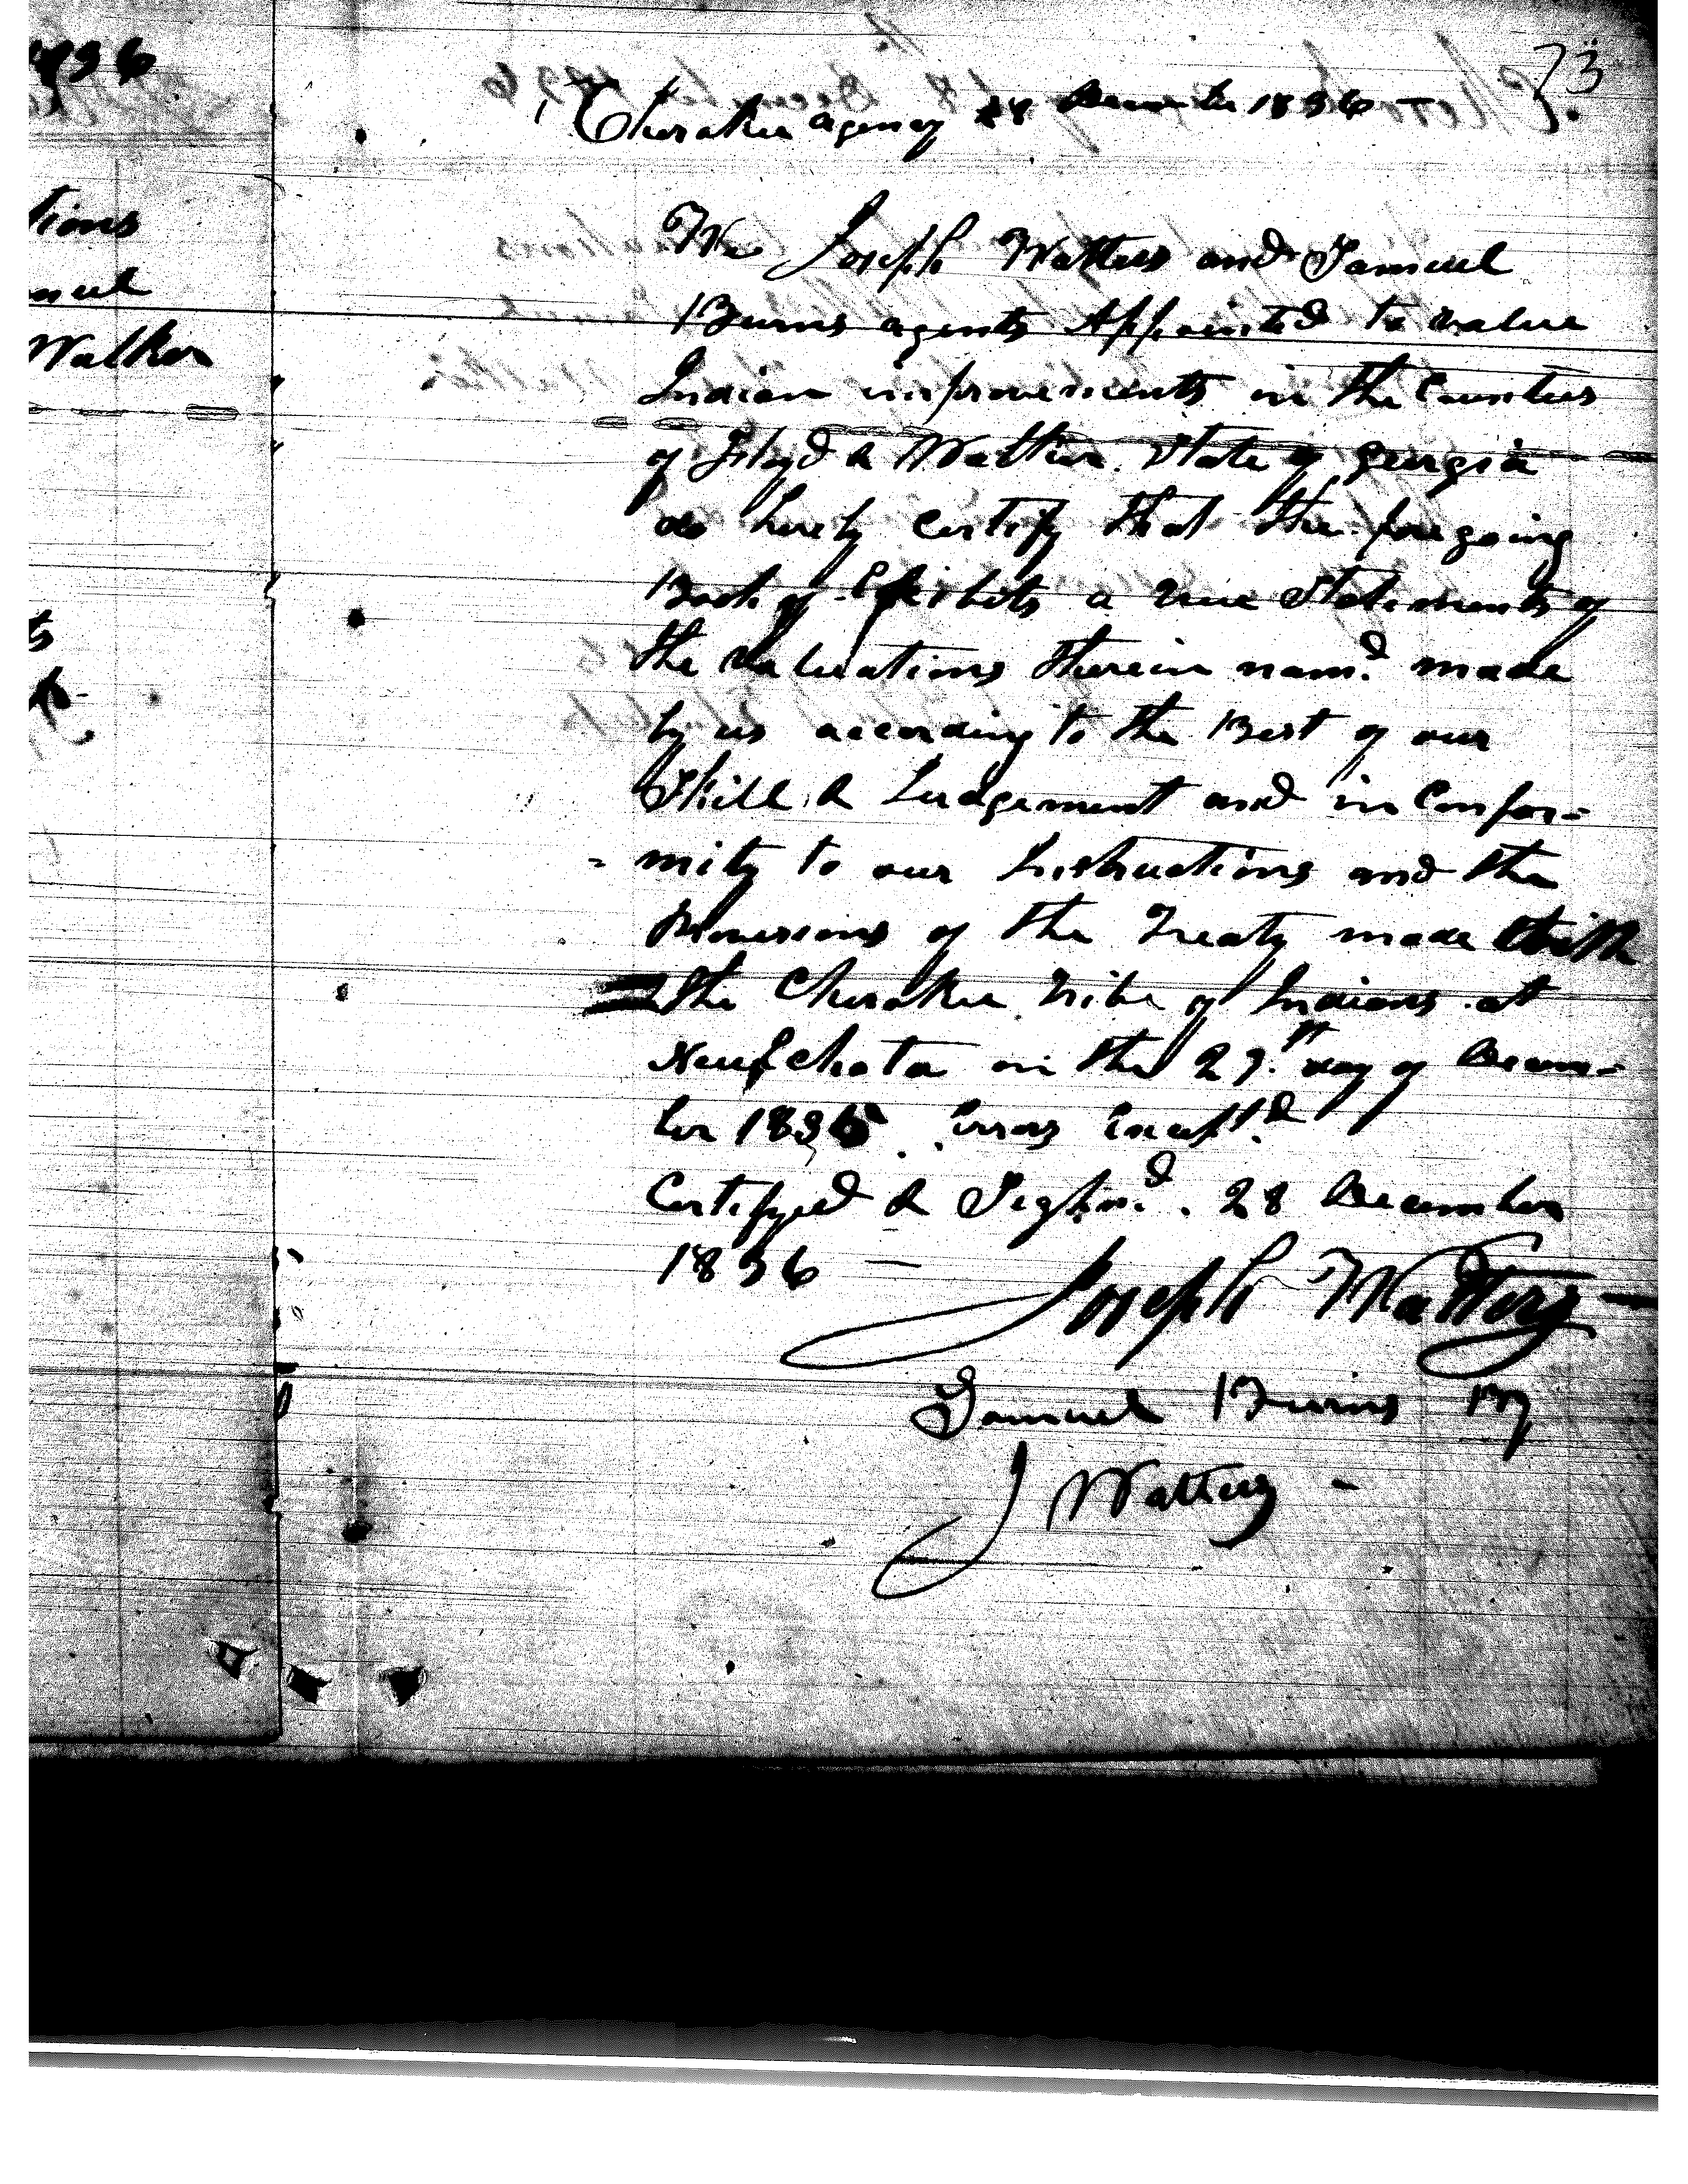 73
Cherokee agency 28 December 1836 —
We Joseph Watters and Samuel
Burns agents Appointed to value
Indian improvements in the Counties
of Floyd & Walker State of Georgia
do hereby certify that the foregoing
Book of Exhibits a true Statements of
the Valuations therein nam.d made
by us according to the Best of our
Skill & Judgement and in Confor-
- mity to our Instructions and the
Provisions of the Treaty made with
the Cherokee Tribe of Indians at
New Echota on the 29.th day of Decem-
ber 1835. Errors Except.d
Certifyed & Sighn.d. 28 December
1836 —
Joseph Watters
Samuel Burns By
J Watters -
1836
tions
muel
Walker
ts